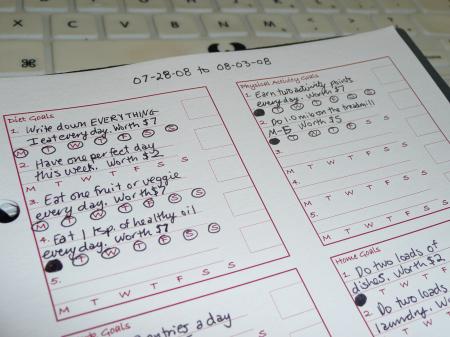 Z
X
C
V
B
N
M
⌘
07-28-08 to 08-03-08
Diet Goals
1. Write down EVERYTHING
I eat every day. Worth $7
M T W T F S S
2. Have one perfect day
this week. Worth $2
M T W T F S S
3. Eat one fruit or veggie
every day. Worth $7
M T W T F S S
4. Eat 1 tsp. of healthy oil
every day. Worth $7
T W T F S S
5.
M T W T F S S
Physical Activity Goals
1. Earn two activity points
every day. Worth $7
T W T F S S
2. Do 1.0 mi on the treadmill
M-F. Worth $5
T W T F S S
3.
M T W T F S S
4.
M T W T F S S
5.
M T W T F S S
Home Goals
1. Do two loads of
dishes. Worth $2
2. Do two loads
laundry. Wor
Goals
entries a day